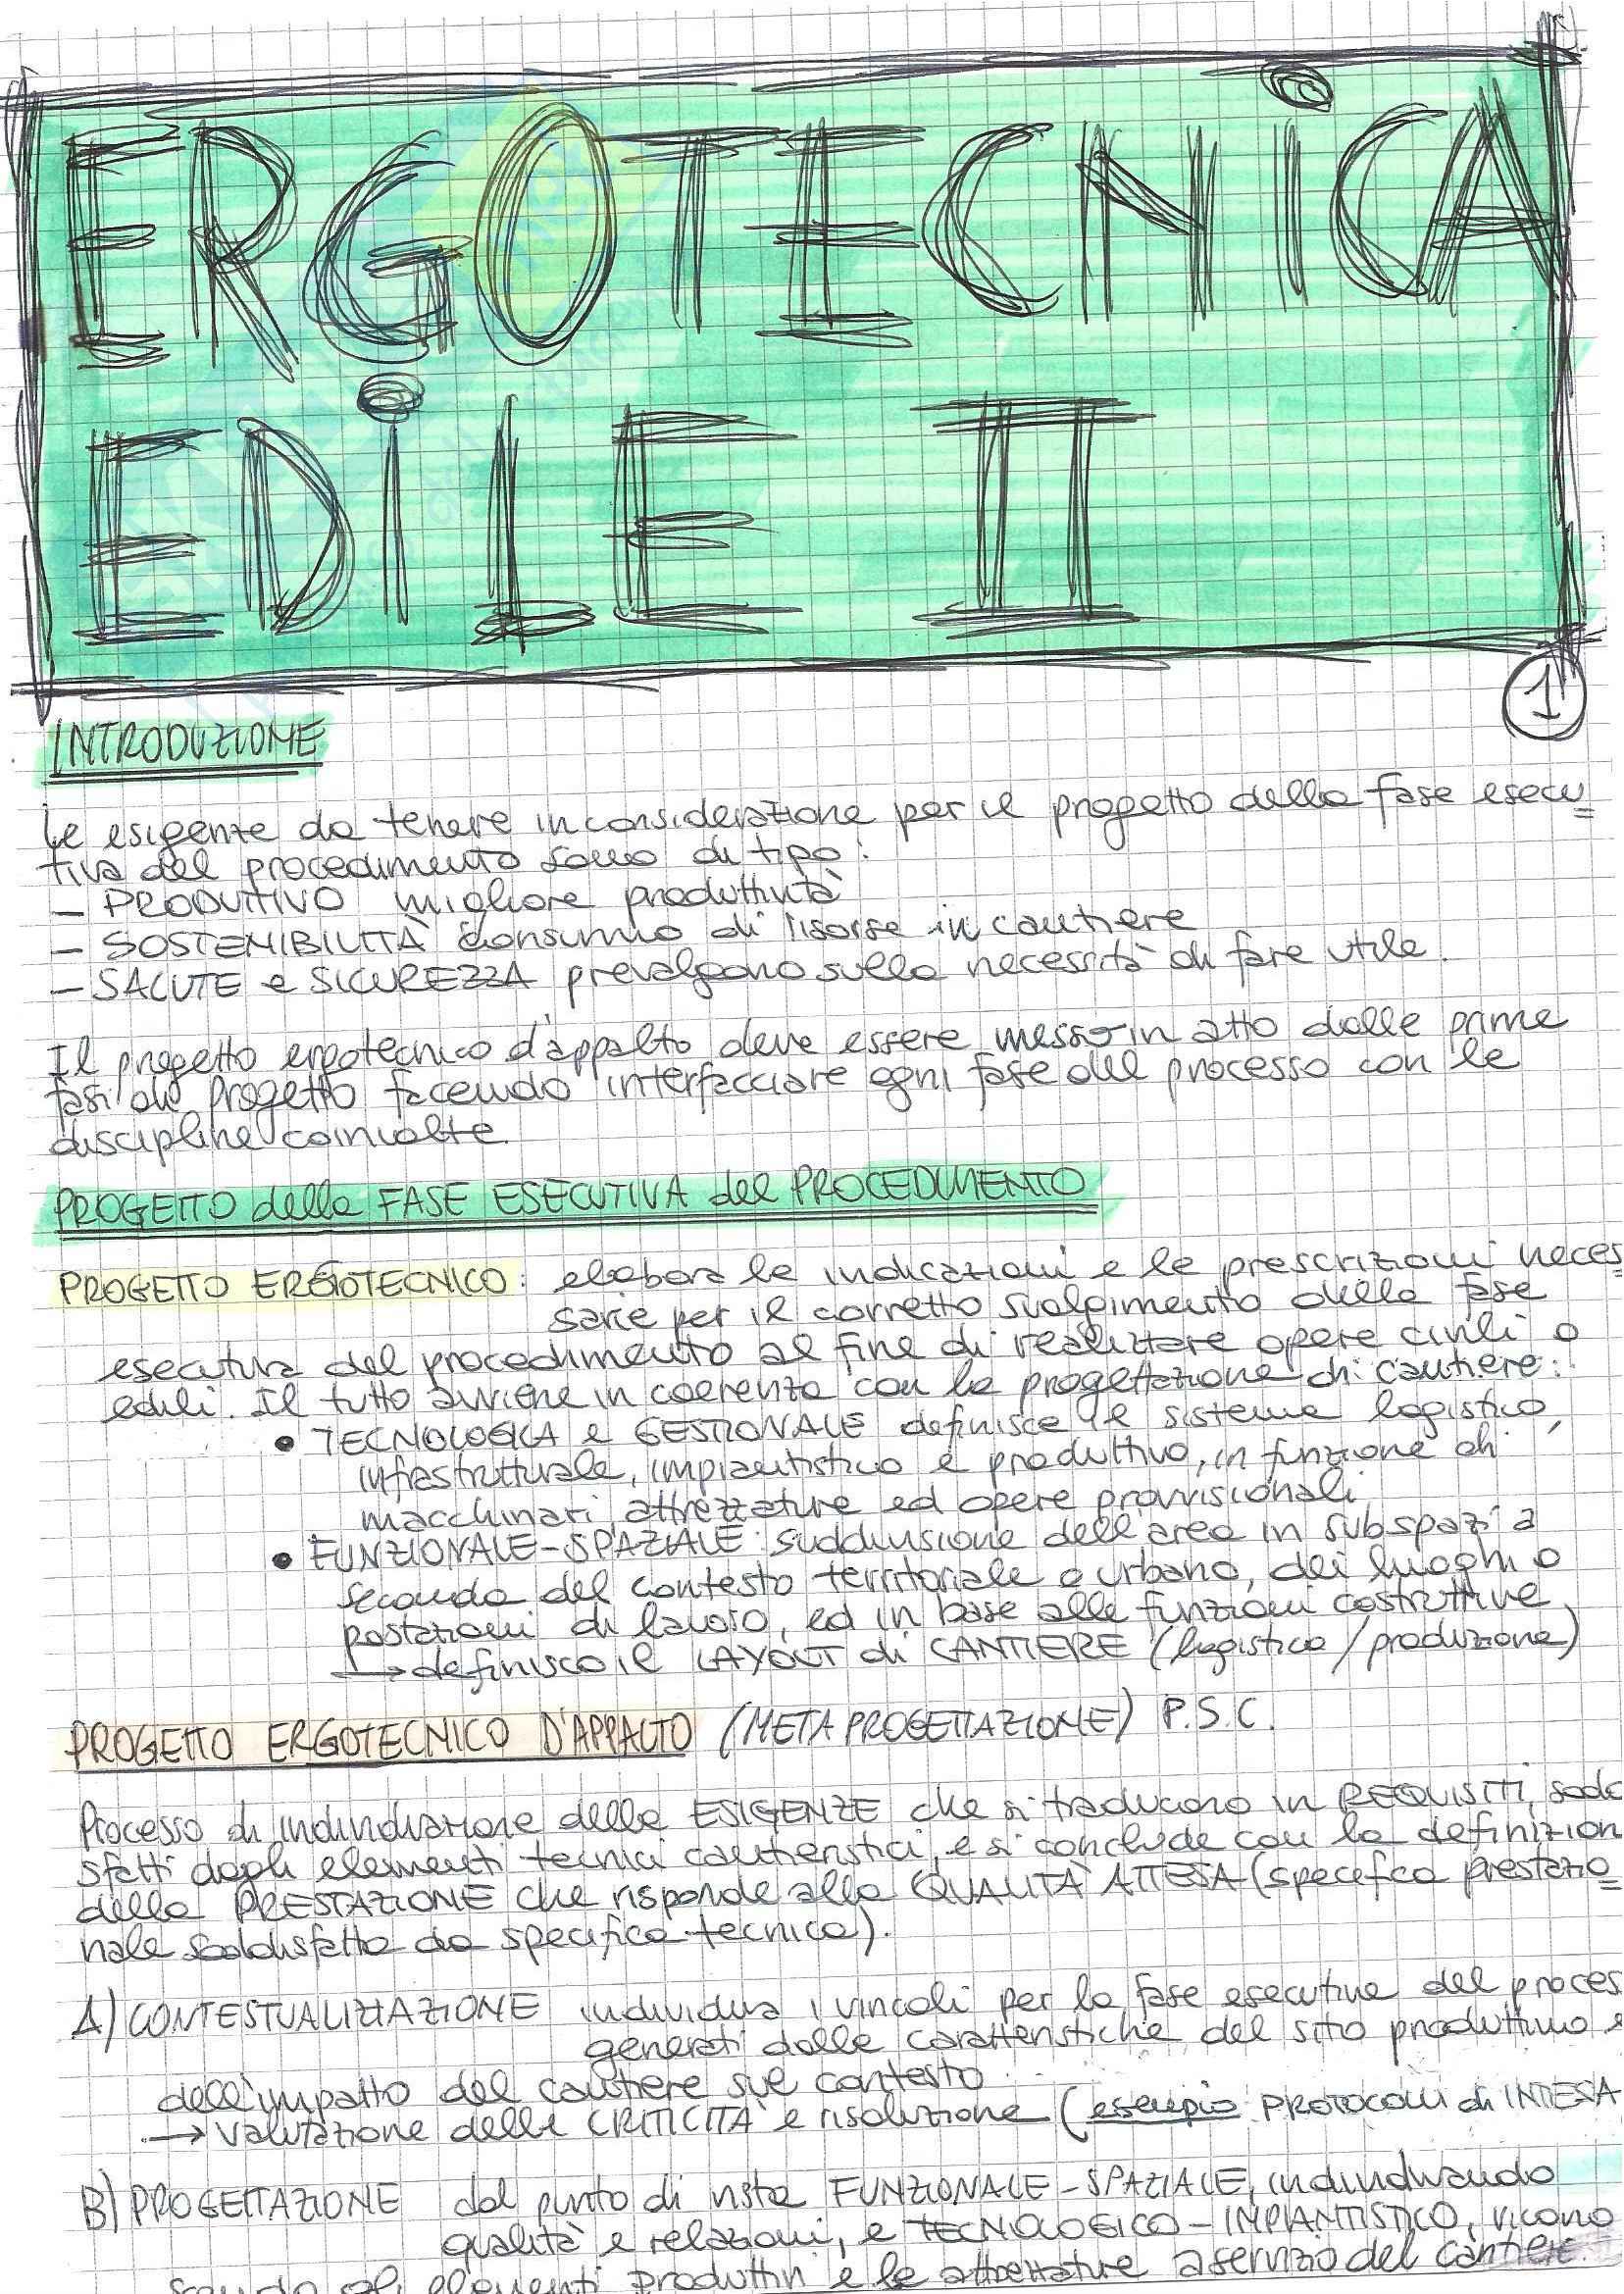 ERGOTECNICA
EDILE II
1
INTRODUZIONE
Le esigenze da tenere in considerazione per il progetto della fase esecu=
tiva del procedimento sono di tipo:
- PRODUTTIVO migliore produttività
- SOSTENIBILITÀ consumo di risorse in cantiere
- SALUTE e SICUREZZA prevalgono sulla necessità di fare utile.
Il progetto ergotecnico d'appalto deve essere messo in atto dalle prime
fasi di progetto facendo interfacciare ogni fase del processo con le
discipline coinvolte.
PROGETTO della FASE ESECUTIVA del PROCEDIMENTO
PROGETTO ERGOTECNICO: elabora le indicazioni e le prescrizioni neces=
sarie per il corretto svolgimento della fase
esecutiva del procedimento al fine di realizzare opere civili o
edili. Il tutto avviene in coerenza con la progettazione di cantiere:
• TECNOLOGICA e GESTIONALE definisce il sistema logistico,
infrastrutturale, impiantistico e produttivo, in funzione di
macchinari, attrezzature ed opere provvisionali
• FUNZIONALE-SPAZIALE: suddivisione dell'area in subspazi a
seconda del contesto territoriale o urbano, dei luoghi o
postazioni di lavoro, ed in base alle funzioni costruttive
→ definisco il LAYOUT di CANTIERE (logistica/produzione)
PROGETTO ERGOTECNICO D'APPALTO (METAPROGETTAZIONE) P.S.C.
Processo di individuazione delle ESIGENZE che si traducono in REQUISITI, sodd
sfatti dagli elementi tecnici cantieristici, e si conclude con la definizion
della PRESTAZIONE che risponde alla QUALITÀ ATTESA (specifica prestazio=
nale soddisfatta da specifica tecnica).
A) CONTESTUALIZZAZIONE individua i vincoli per la fase esecutiva del proces
generati dalle caratteristiche del sito produttivo e
dell'impatto del cantiere sul contesto
→ Valutazione delle CRITICITÀ e risoluzione (esempio PROTOCOLLI di INTESA
B) PROGETTAZIONE dal punto di vista FUNZIONALE-SPAZIALE, individuando
qualità e relazioni, e TECNOLOGICO-IMPIANTISTICO, ricono
scendo gli elementi produttivi e le attrezzature a servizio del cantiere.